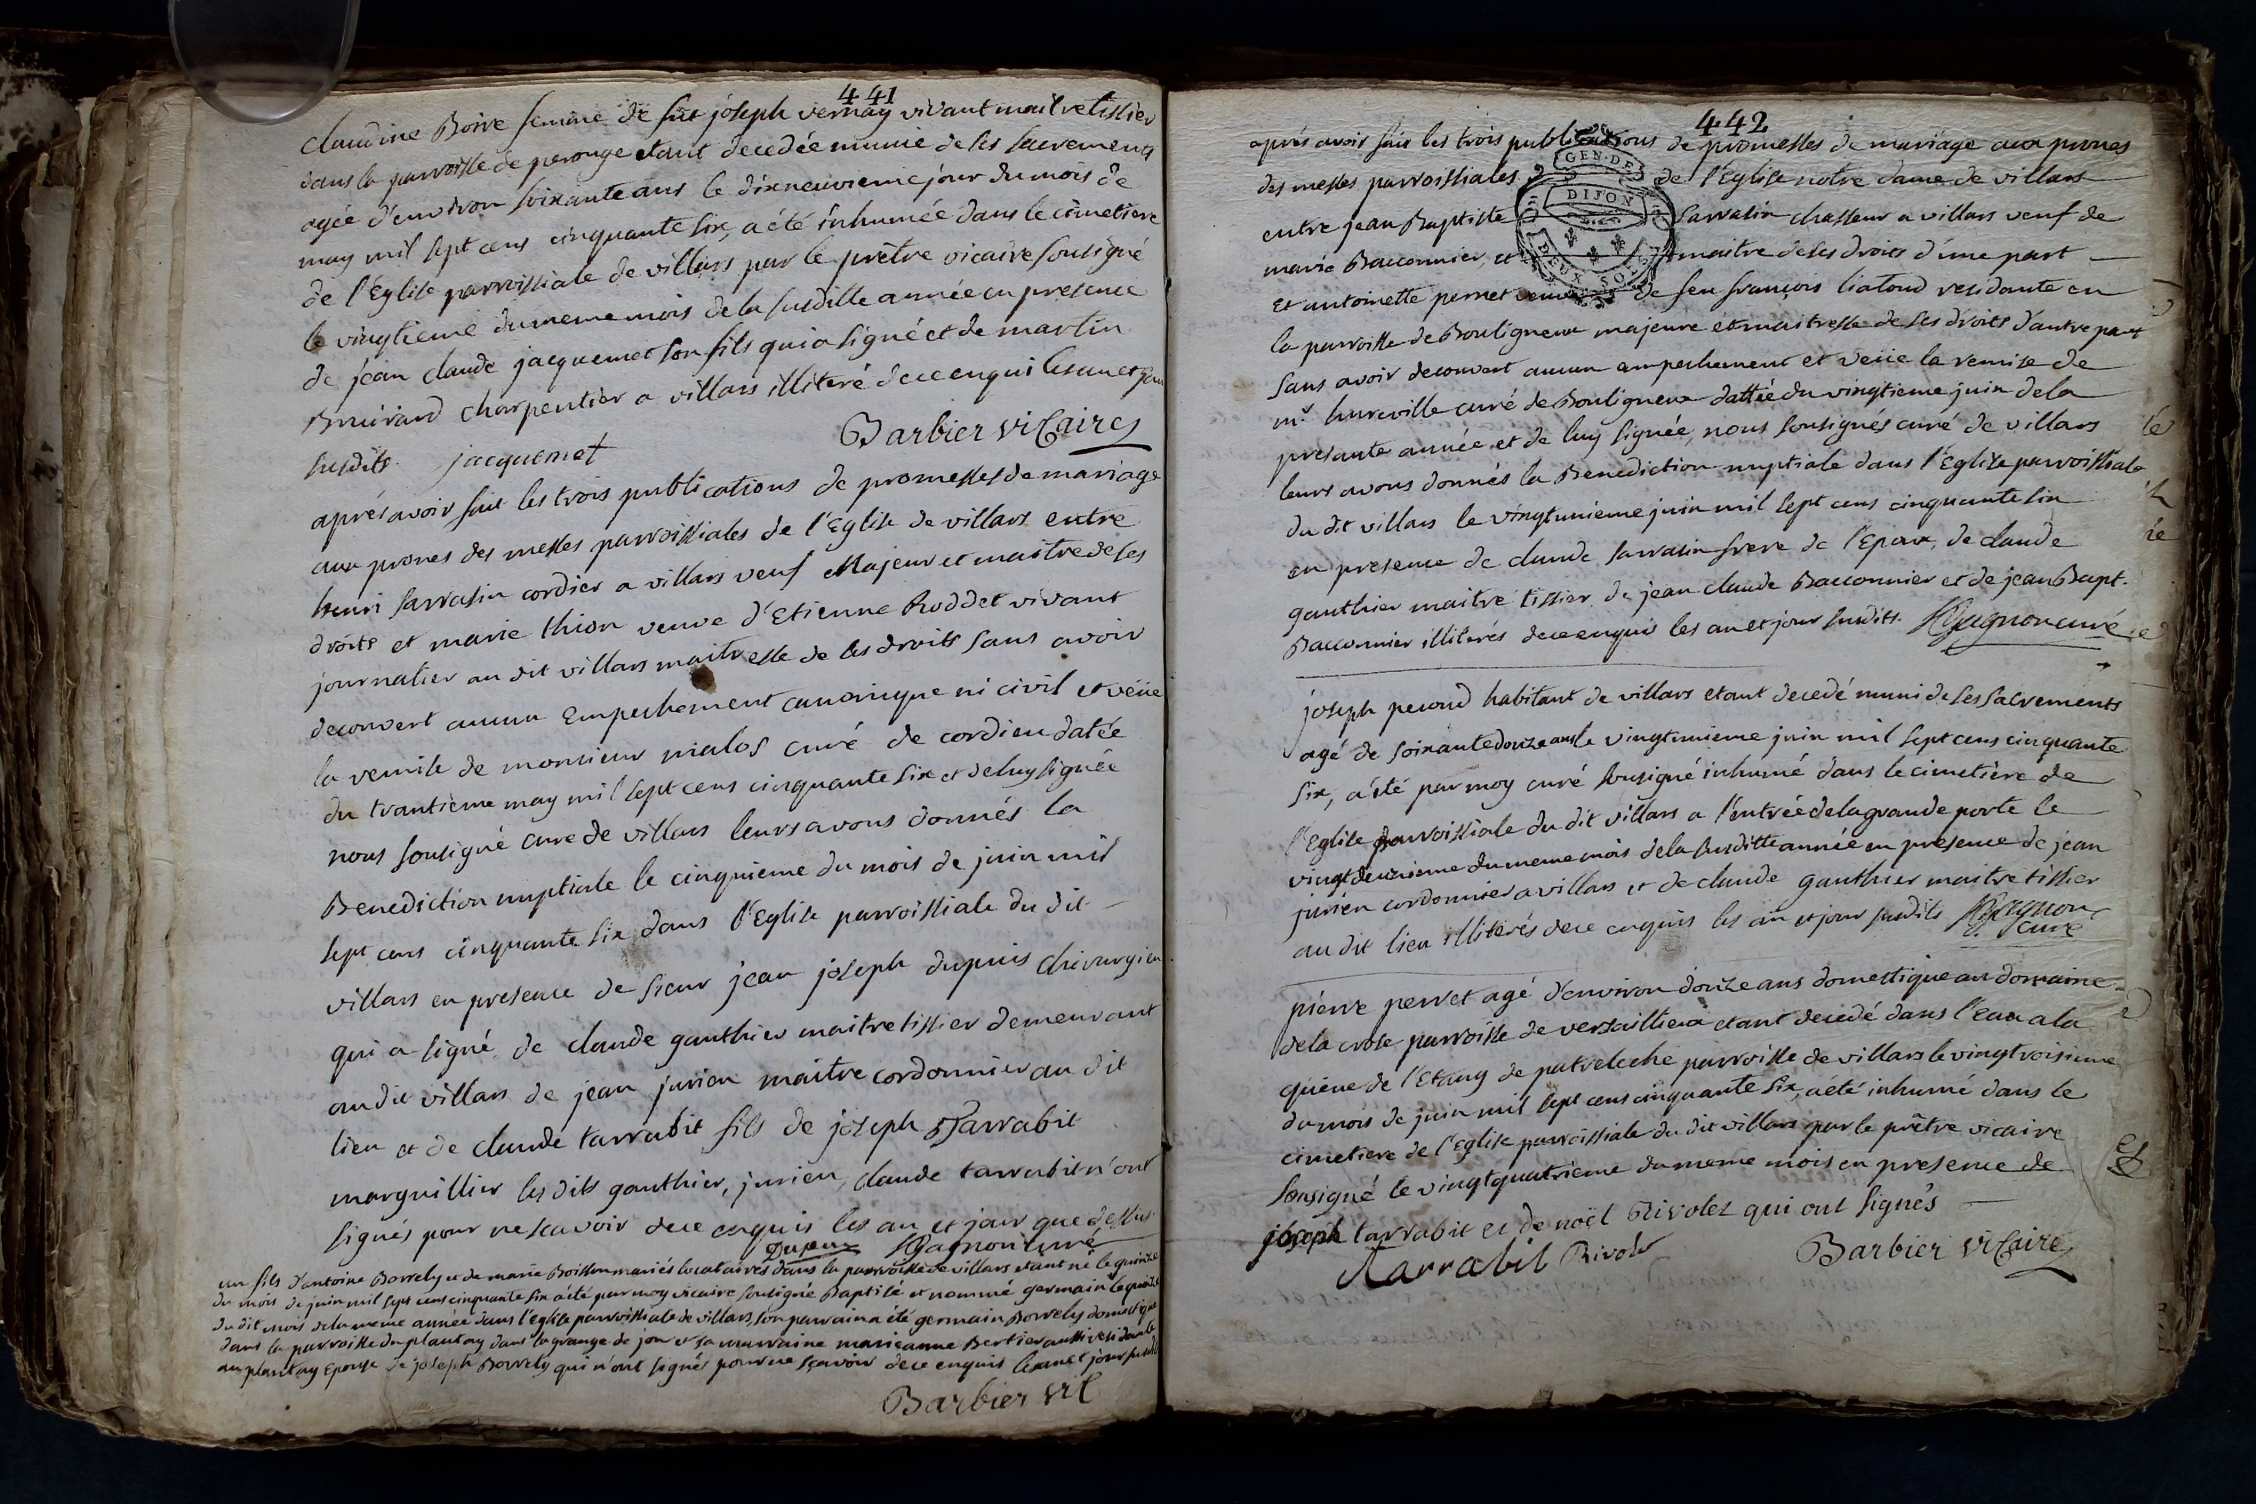 441
claudine Boire femme de feu joseph vernay vivant maitre tissier
dans la parroisse de perouge etant decedée munie de ses sacrements
agée d'environ soixante ans le dixneuvieme jour du mois de
may mil sept cens cinquante six, a été inhumée dans le cimetiere
de l'Eglise parroissiale de villars par le prêtre vicaire sousigné
le vingtieme du meme mois de la susditte année en presence
de jean claude jacquemet son fils qui a signé et de martin
charpentier a villars illiteré de ce enqui les an et jour
susdits. jacquemet Barbier vicaire
aprés avoir fait les trois publications de promesses de mariage
aux prones des messes parroissiales de l'Eglise de villars entre
henri sarrasin cordier a villars veuf Majeur et maitre de ses
droits et marie thion veuve d'Etienne Roddet vivant
journalier au dit villars maitresse de ses droits sans avoir
decouvert aucun empechement canonique ni civil et veüe
la remise de monsieur nialos curé de cordieu datée
du trantieme may mil sept cens cinquante six et de luy signée
nous sousigné curé de villars leurs avons donnés la
Benediction nuptiale le cinquieme du mois de juin mil
sept cens cinquante six dans l'Eglise parroissiale du dit
villars en presence de sieur jean joseph dupuis chirurgien
qui a signé de claude gauthier maitre tissier demeurant
au dit villars de jean jurien maitre cordonnier au dit
lieu et de claude tarrabit fils de joseph tarrabit
marguillier les dits gauthier, jurien, claude tarrabit n'ont
signés pour ne scavoir de ce enquis les an et jour que dessus
Dupuis Gagnon curé
un fils d'antoine Borrely et de marie Boisson mariés locataires dans la parroisse de villars etant né le quinze
du mois de juin mil sept cens cinquante six a été par moy vicaire sousigné Baptisé et nommé germain le quinze
du dit mois de la meme année dans l'eglise parroissiale de villars, son parrain a été germain Borrely domestique
dans la parroisse du plantay dans la grange de jon et sa marraine marieanne Bertier aussi residante
au plantay Epouse de joseph Borrely qui n'ont signés pour ne sçavoir de ce enquis les an et jour susdit
Barbier vic
442
aprés avoir fait les trois publications de promesses de mariage aux prones
des messes parroissiales de l'Eglise notre dame de villars
entre jean Baptiste sarrasin chasseur a villars veuf de
marie Bacconnier, et maitre de ses droits d'une part
et antoinette pernet veuve de feu françois liatoud residante en
la parroisse de Bouligneux majeure et maitresse de ses droits d'autre part
sans avoir decouvert aucun empechement et veüe la remise de
mr hureville curé de Bouligneux dattée du vingtieme juin de la
presante année et de luy signée, nous sousignés curé de villars
leurs avons donnés la Benediction nuptiale dans l'Eglise parroissiale
du dit villars le vingtunieme juin mil sept cens cinquante six
en presence de claude sarrasin frere de l'Epoux, de claude
gauthier maitre tissier de jean claude Bacconnier et de jean Bapt.
Bacconnier illiterés de ce enquis les an et jour susdits. Gagnon curé
joseph pecoud habitant de villars etant decedé muni de ses sacrements
agé de soixante douze ans le vingtunieme juin mil sept cens cinquante
six, a été par moy curé sousigné inhumé dans le cimetière de
l'Eglise parroissiale du dit villars a l'entrée de la grande porte le
vingtdeuxieme du meme mois de la susditte année en presence de jean
jurien cordonnier a villars et de claude gauthier maitre tissier
au dit lieu illiterés de ce enquis les an et jour susdits Gagnon
curé
pierre perret agé d'environ douze ans domestique au domaine
de la crose parroisse de versailleux etant decedé dans l'eau a la
queüe de l'Etang de parroisse de villars le vingtroisieme
du mois de juin mil sept cens cinquante six, a été inhumé dans le
cimetiere de l'Eglise parroissiale du dit villars par le prêtre vicaire
sousigné le vingtquatrieme du meme mois en presence de
joseph tarrabit et de noël Rivolet qui ont signés
tarrabit Rivolet Barbier vicaire
GEN. DE
DIJON
DEUX SOLS